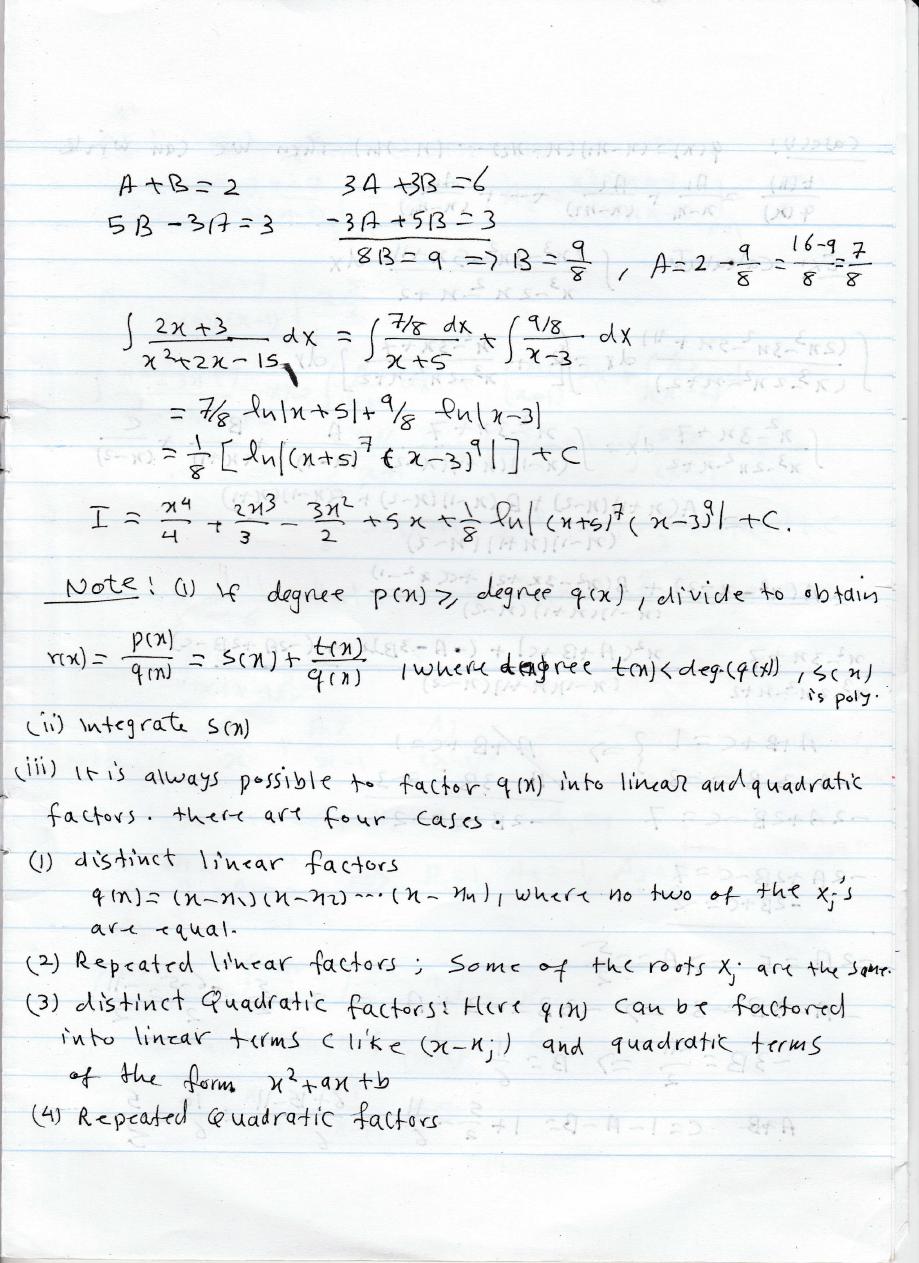 A + B = 2    3A + 3B = 6
5B - 3A = 3    -3A + 5B = 3
8B = 9 => B = 9/8 , A = 2 - 9/8 = (16-9)/8 = 7/8
∫ (2x+3)/(x²+2x-15) dx = ∫ (7/8 dx)/(x+5) + ∫ (9/8)/(x-3) dx
= 7/8 ln|x+5| + 9/8 ln|x-3|
= 1/8 [ ln|(x+5)⁷ (x-3)⁹| ] + C
I = x⁴/4 + 2x³/3 - 3x²/2 + 5x + 1/8 ln|(x+5)⁷ (x-3)⁹| + C.
Note! (1) If degree p(x) ≥ degree q(x), divide to obtain
r(x) = p(x)/q(x) = s(x) + t(x)/q(x) , where degree t(x) < deg.(q(x)) , s(x)
is poly.
(ii) Integrate s(x)
(iii) It is always possible to factor q(x) into linear and quadratic
factors. there are four cases.
(1) distinct linear factors
q(x) = (x-x₁)(x-x₂) ... (x-xₙ), where no two of the xⱼ's
are equal.
(2) Repeated linear factors ; Some of the roots xⱼ are the same.
(3) distinct Quadratic factors: Here q(x) can be factored
into linear terms (like (x-xⱼ) and quadratic terms
of the form x²+ax+b
(4) Repeated Quadratic factors